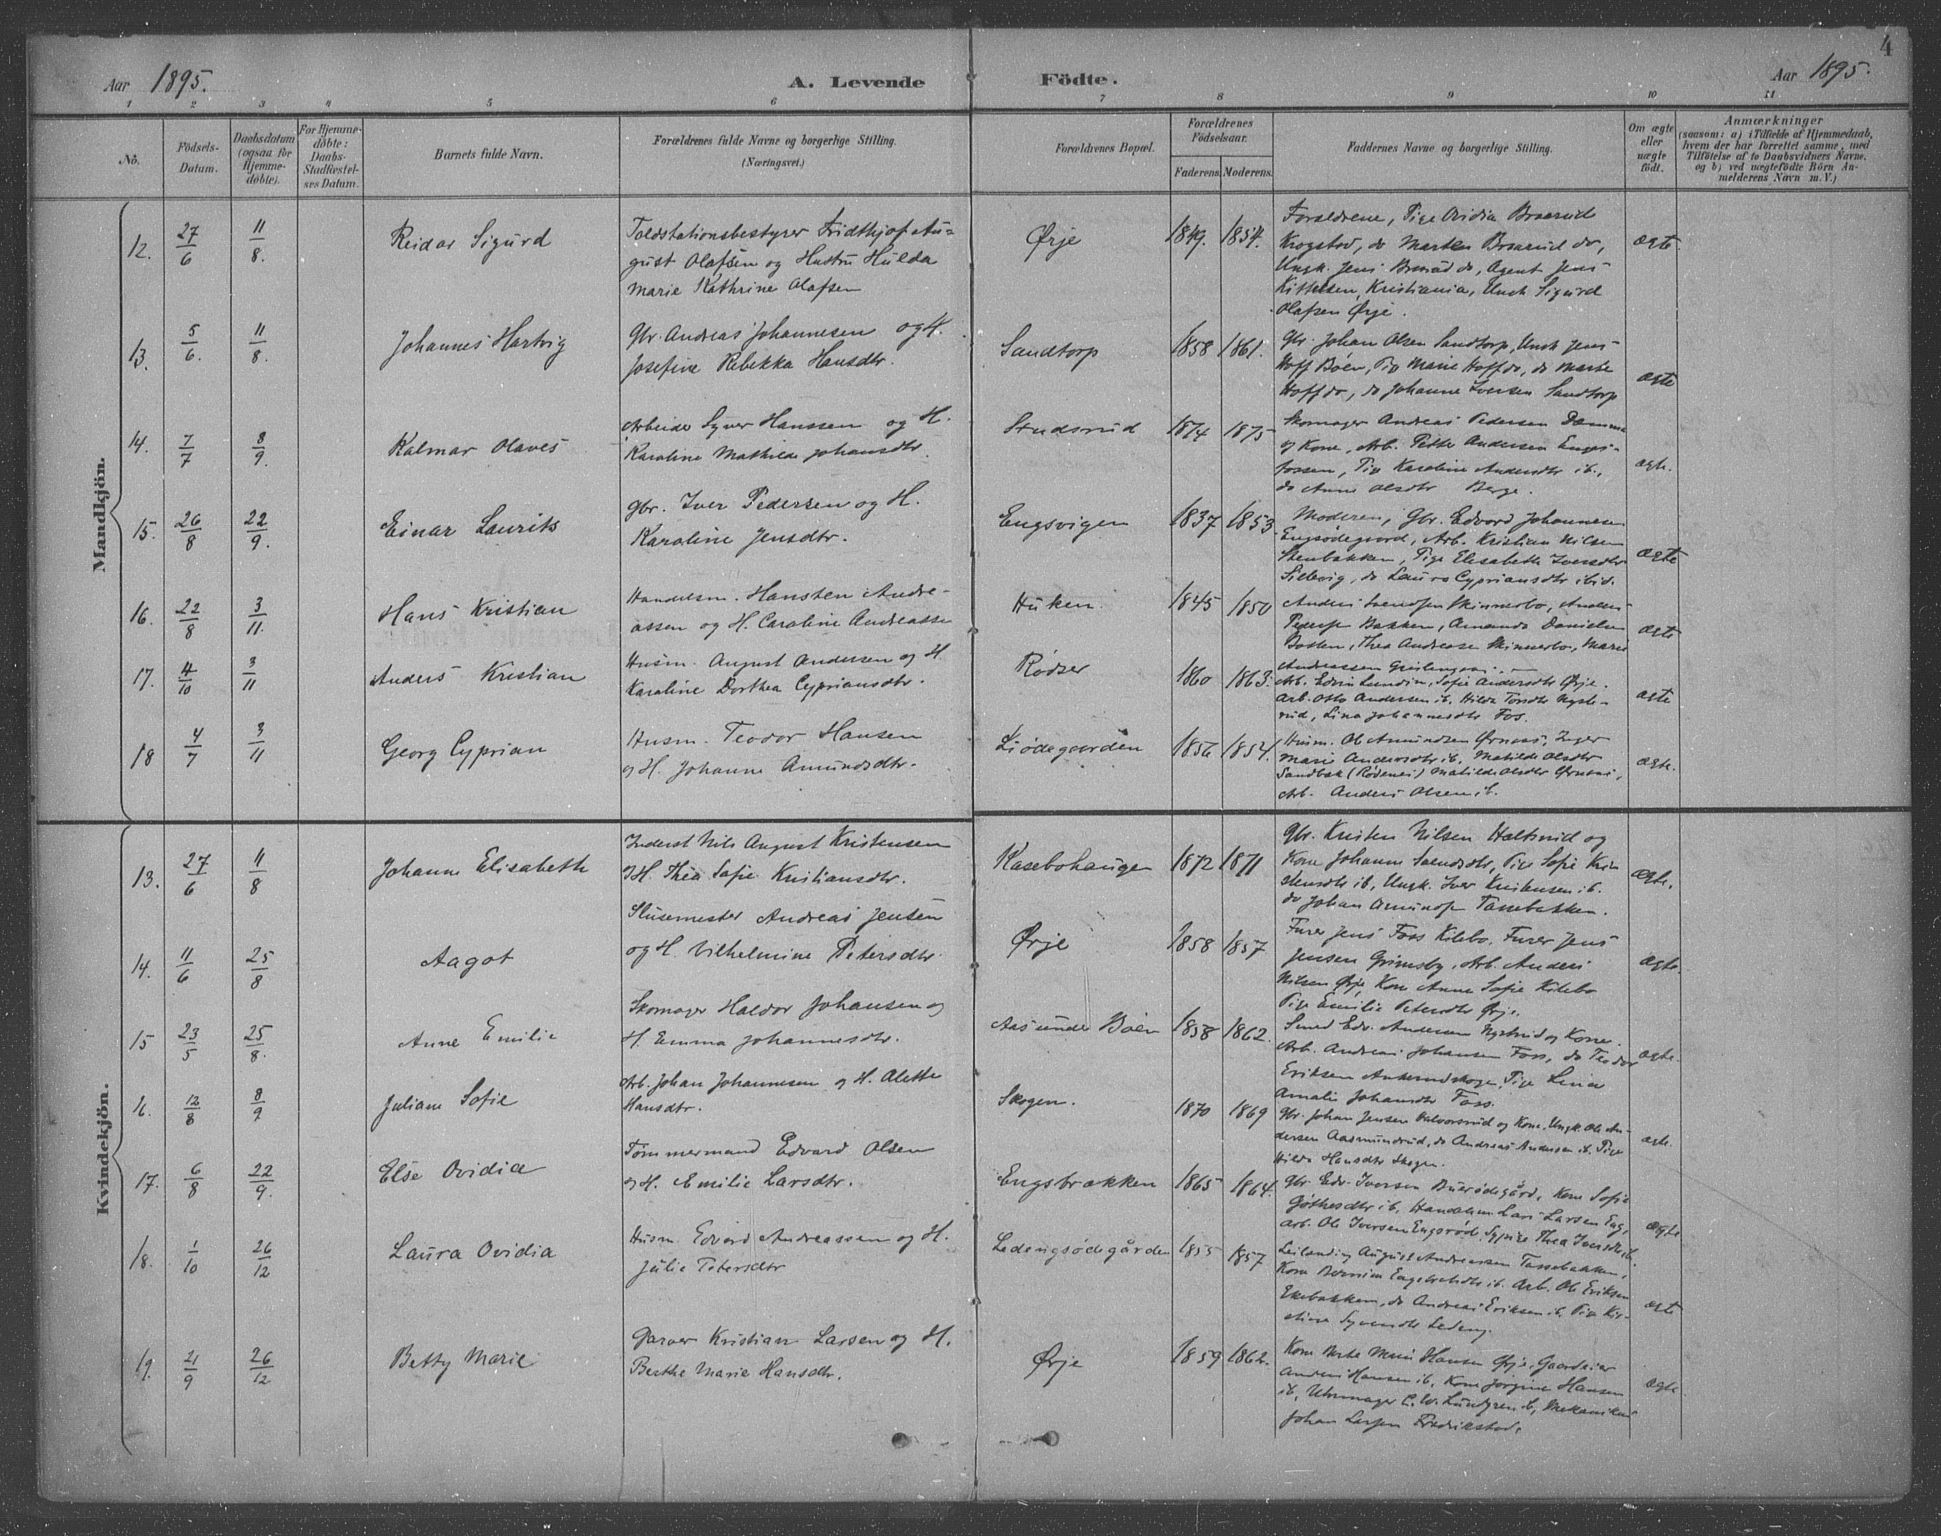 4
Aar 1895.
A. Levende Födte.
Aar 1895.
1 2 3 4 5 6 7 8 9 10 11
No.
Födsels-Datum.
Daabsdatum (ogsaa for Hjemme-döbte).
For Hjemme-döbte: Daabs-Stadfæstel-ses Datum.
Barnets fulde Navn.
Forældrenes fulde Navne og borgerlige Stilling.
(Næringsvei.)
Forældrenes Bopæl.
Forældrenes Födselsaar.
Faderens. Moderens.
Faddernes Navne og borgerlige Stilling.
Om ægte eller uægte födt.
Anmærkninger
(saasom: a) i Tilfælde af Hjemmedaab, hvem der har forrettet samme, med Tilföielse af to Daabsvidners Navne, og b) ved uægtefödte Börn An-melderens Navn m. V.)
Mandkjön.
12. 27/6 11/8. Reidar Sigurd
Toldstationsbestyrer Fridthjof Au-
gust Olafsen og Hustru Hulda
Marie Kathrine Olafsen
Ørje 1849. 1854.
Forældrene, Pige Ovidia Braarud
Krogstad, do Marten Braarud do,
Ungk. Jens Braarud do, Agent Jens
Kittelsen, Kristiania, Unk Sigurd
Olafsen Ørje.
ægte
13. 5/6. 11/8. Johannes Hartvig
Gbr. Andreas Johannesen og H.
Josefine Rebekka Hansdtr.
Sandtorp 1858 1861.
Gbr. Johan Olsen Sandtorp, Unk Jens
Hoff Böen, Pig Marie Hoff do, do Marte
Hoff do, do Johanne Iversen Sandtorp
ægte
14. 7/7 8/9. Kalmar Olaves
Arbeider Syver Hanssen og H.
Karoline Mathilde Johansdtr.
Studsrud 1874 1875
Skomager Andreas Pedersen Damme
og Kone, Arb. Petter Andersen Engs-
fossen, Pig Karoline Andersdtr ib.,
do Anne Olsdtr Berge.
ægte.
15. 26/8 22/9. Einar Laurits
Gbr. Iver Pedersen og H.
Karoline Jensdtr.
Engsvigen 1837 1853
Moderen, Gbr. Edvard Johannesen
Engsødegaard, Arb. Kristian Nilsen
Stenbakken, Pige Elisabeth Iversdtr
Sillevig, do Laura Cypriansdtr ibid.
ægte
16. 22/8 3/11. Hans Kristian
Handelsm. Hansten Andre-
assen og H. Caroline Andreasse
Huken 1845 1850
Anders Svendsen Skinnerbo, Anders
Peders Bakken, Amanda Danielsen
Basten, Thea Andreasse Skinnerbo, Marie
Andreassen
ægte
17. 4/10 3/11 Anders Kristian
Husm. August Andersen og H.
Karoline Dorthea Cypriansdtr.
Rödser 1860 1863.
Arb. Edvin Lundin, Sofie Andersdtr Ørje.
Arb. Otto Andersen ib. Hilda Torsdtr Nyste-
rud, Lina Johannesdtr Fos.
ægte
18 4/7 3/11 Georg Cyprian
Husm. Teodor Hansen
og H. Johanne Amundsdtr.
Liødegaarden 1856 1854.
Husm. Ole Amundsen Ørnæs, Inger
Marie Andersdtr ib. Matilde Olsdtr
Sandbæk (Rødenes) Matilde Olsdtr Ørnæs,
Arb. Anders Olsen ib.
ægte.
Kvindekjön.
13. 27/6 11/8 Johanne Elisabeth
Inderst Nils August Kristensen
og H. Thea Sofie Kristiansdtr.
Kasebohaugen 1872 1871
Gbr. Kristen Nilsen Hæltorud og
Kone Johanne Svendsdtr, Pige Sofie Kri-
stensdtr ib, Ungk. Iver Kristensen ib.
do Johan Amunds Tassebakken.
Ægte.
14. 11/6 25/8 Aagot
Slusemester Andreas Jensen
og H. Vilhelmine Petersdtr.
Ørje 1858 1857
Furer Jens Foss Kilebo. Furer Jens
Jensen Grimsby. Arb. Anders
Nilsen Ørje, Kone Anne Sofie Kilebo
Pige Emilie Petersdtr Ørje.
ægte.
15 23/5 25/8. Anne Emilie
Skomager Haldor Johansen og
H. Emma Johannesdtr.
Aasunder Böen 1858 1862.
Smed Edv. Andersen Nystrud og Kone.
Arb. Andreas Johansen Foss, do Teodor
Eriksen Ankerudskogen, Pige Lina
Amalie Johansdtr Foss.
ægte.
16. 12/8 8/9 Juliane Sofie
Arb. Johan Johannesen og H. Alette
Hansdtr.
Skogen. 1870 1869
Gbr. Johan Jensen Halvorsrud og Kone, Ungk. Ole An-
dersen Aasmundrud, do Andreas Andersen ib. Pige
Hilda Hansdtr Skogen.
ægte.
17. 6/8 22/9. Else Ovidia
Tömmermand Edvard Olsen
og H. Emilie Larsdtr.
Engsbrækken 1865 1864.
Gbr. Edv. Iversen Buerødegård, Kone Sofie
Göthesdtr ib, Handelsm Lars Larsen Eng,
Arb. Ole Iversen Engsrød, Sypige Thea Iversdtr ib.
ægte
18. 1/10 26/12 Laura Ovidia
Husm. Edvard Andreassen og H.
Julie Petersdtr
Ledengsødegården 1855 1857
Leilanding August Andreassen Tassebakken,
Kone Engebretsdtr ib. Arb. Ole Eriksen
Ekebakken, do Andreas Eriksen ib. Pige Kri-
stine Syvensdtr Ledeng.
ægte
19. 21/9 26/12 Betty Marie
Garver Kristian Larsen og H.
Berthe Marie Hansdtr.
Ørje 1859 1862.
Kone Marie Hansen Ørje, Gaardeier
Anders Hansen ib, Kone Jørgine Hansen
ib, Uhrmager C. W. Lundgren ib, Mekaniker
Johan Larsen Fredrikstad.
ægte